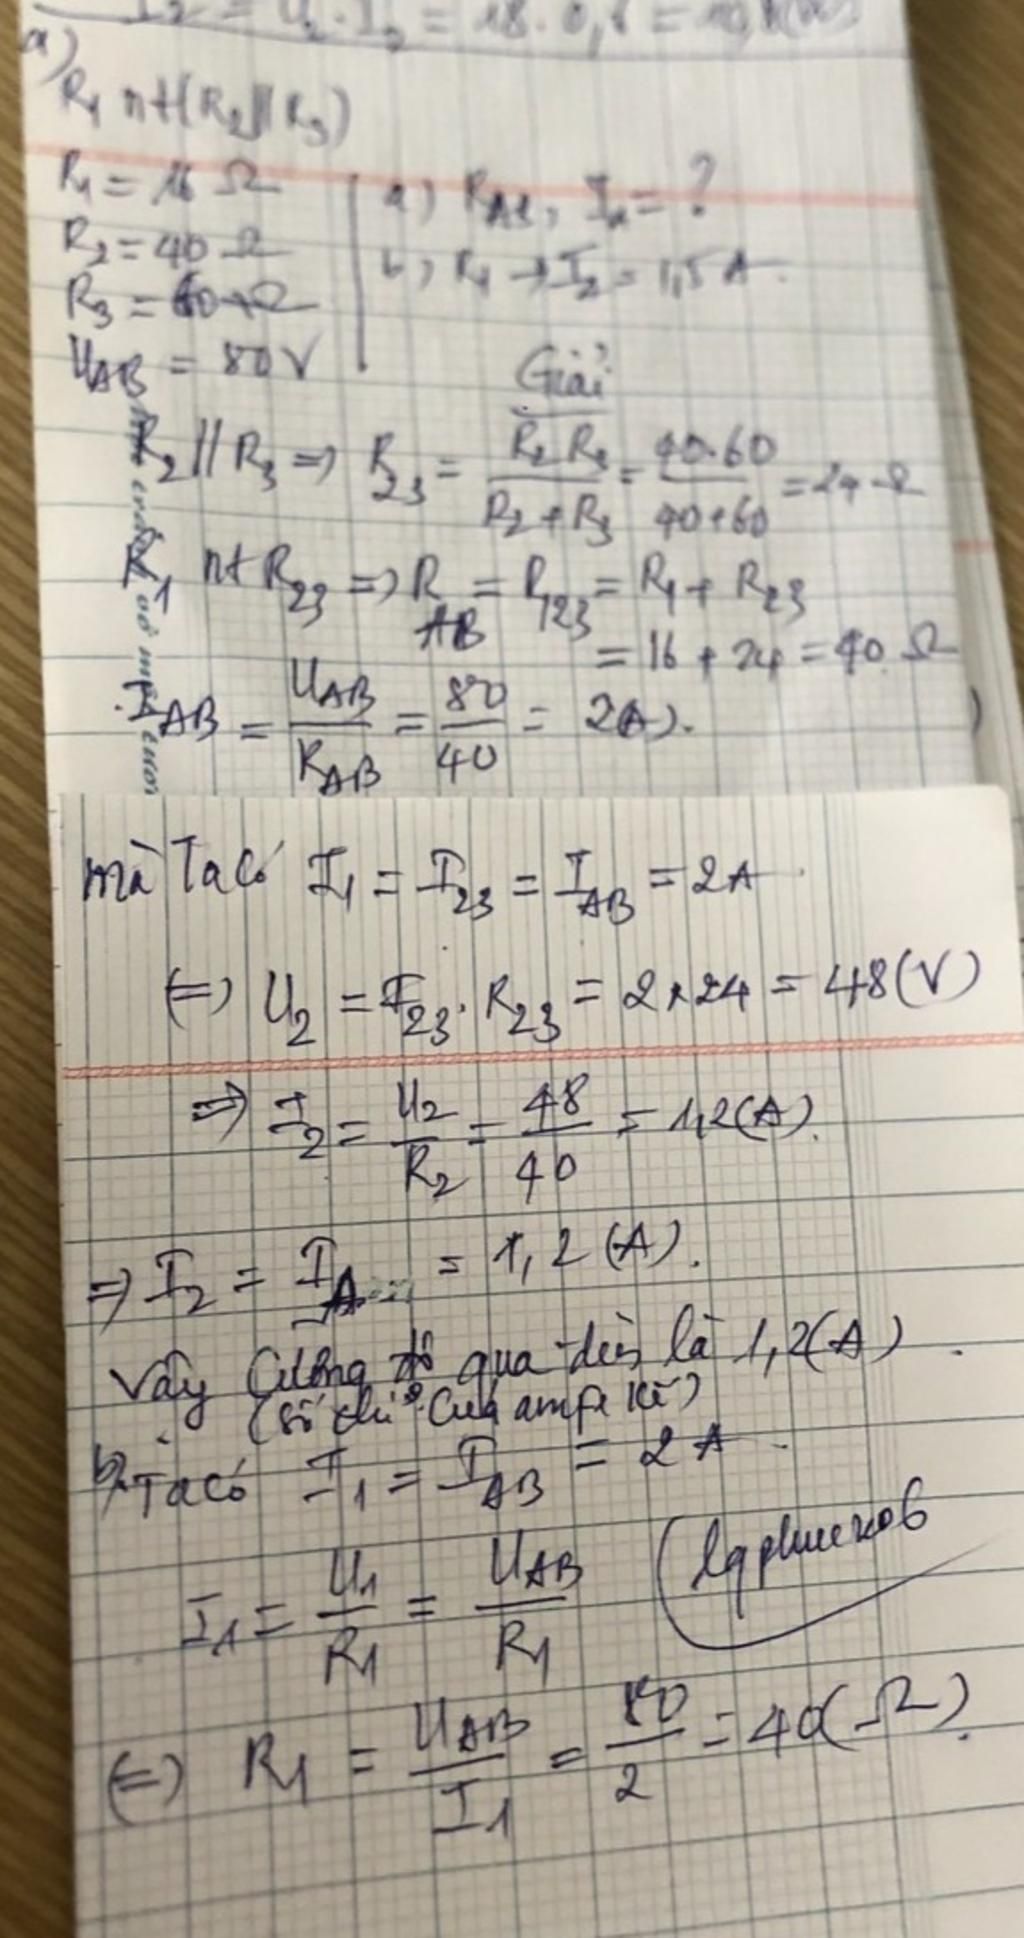 I2 = U2 . I2 = 18 . 0,6 = 10,8(W)
a)
R1 nt(R2 // R3)
R1 = 16 Ω | a) RAB, IA = ?
R2 = 40 Ω | b) R1 → I2 = 1,5 A.
R3 = 60 Ω
UAB = 80 V
Giải
R2 // R3 => R23 = R2 R3 / R2 + R3 = 40.60 / 40+60 = 24 Ω
R1 nt R23 => RAB = R123 = R1 + R23
= 16 + 24 = 40 Ω
IAB = UAB / RAB = 80 / 40 = 2(A).
mà Ta Có I1 = I23 = IAB = 2A
(=) U2 = I23 . R23 = 2 x 24 = 48 (V)
=> I2 = U2 / R2 = 48 / 40 = 1,2(A).
=> I2 = IA = 1,2 (A).
Vậy Cường độ qua đèn là 1,2(A).
(số chỉ của ampe kế)
b, Ta có I1 = IAB = 2 A
I1 = U1 / R1 = UAB / R1
(=) R1 = UAB / I1 = 80 / 2 = 40(Ω).